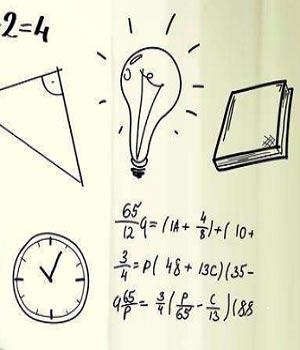 2=4
65/12 q = (1A + 4/8) + ( 10+
3/4 = P( 48 + 13C)(35-
q 65/P = 3/4 (P/65 - C/13)(88